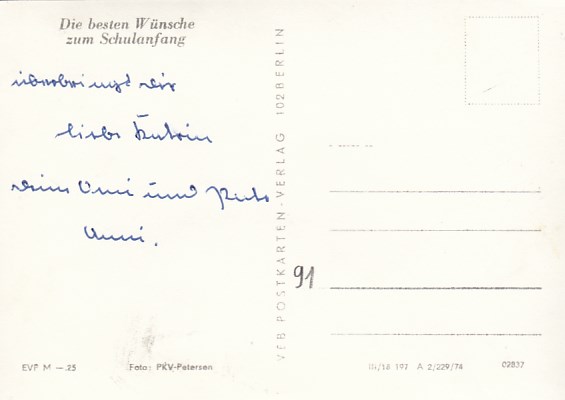 Die besten Wünsche
zum Schulanfang
überbringt dir
liebe Katrin
deine Omi und
Anni.
VEB POSTKARTEN-VERLAG 102 BERLIN
91
EVP M —.25
Foto: PKV-Petersen
III/18 197 A 2/229/74
02837